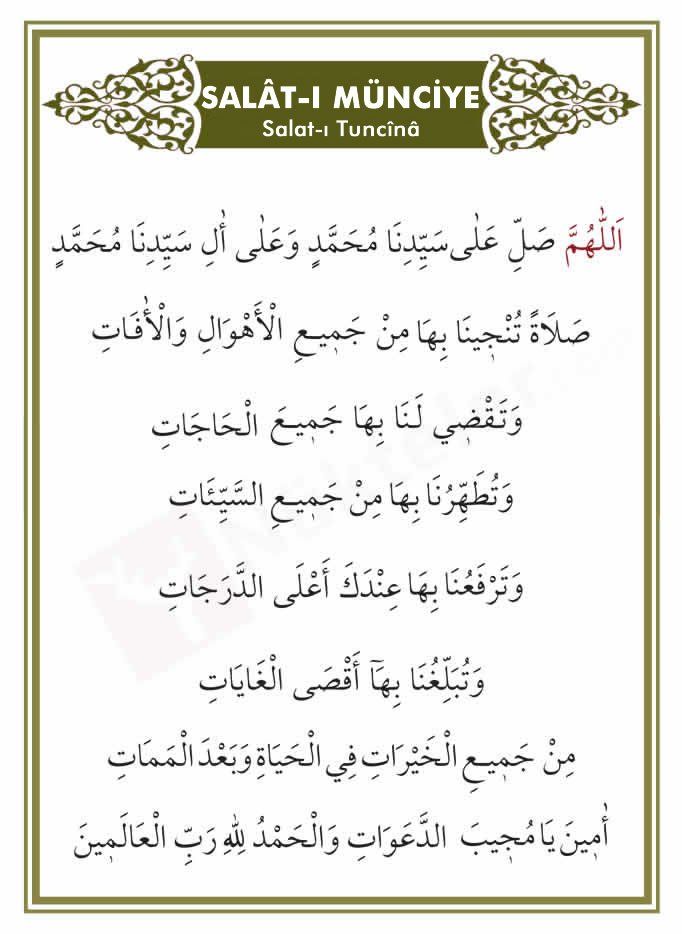 SALÂT-I MÜNCİYE
Salat-ı Tuncînâ
اَللّٰهُمَّ صَلِّ عَلٰى سَيِّدِنَا مُحَمَّدٍ وَعَلٰى أٰلِ سَيِّدِنَا مُحَمَّدٍ
صَلَاةً تُنْجِينَا بِهَا مِنْ جَمِيعِ الْأَهْوَالِ وَالْأٰفَاتِ
وَتَقْضِي لَنَا بِهَا جَمِيعَ الْحَاجَاتِ
وَتُطَهِّرُنَا بِهَا مِنْ جَمِيعِ السَّيِّئَاتِ
وَتَرْفَعُنَا بِهَا عِنْدَكَ أَعْلَى الدَّرَجَاتِ
وَتُبَلِّغُنَا بِهَٓا أَقْصَى الْغَايَاتِ
مِنْ جَمِيعِ الْخَيْرَاتِ فِي الْحَيَاةِ وَبَعْدَ الْمَمَاتِ
أٰمِينَ يَا مُجِيبَ الدَّعَوَاتِ وَالْحَمْدُ لِلّٰهِ رَبِّ الْعَالَمِينَ